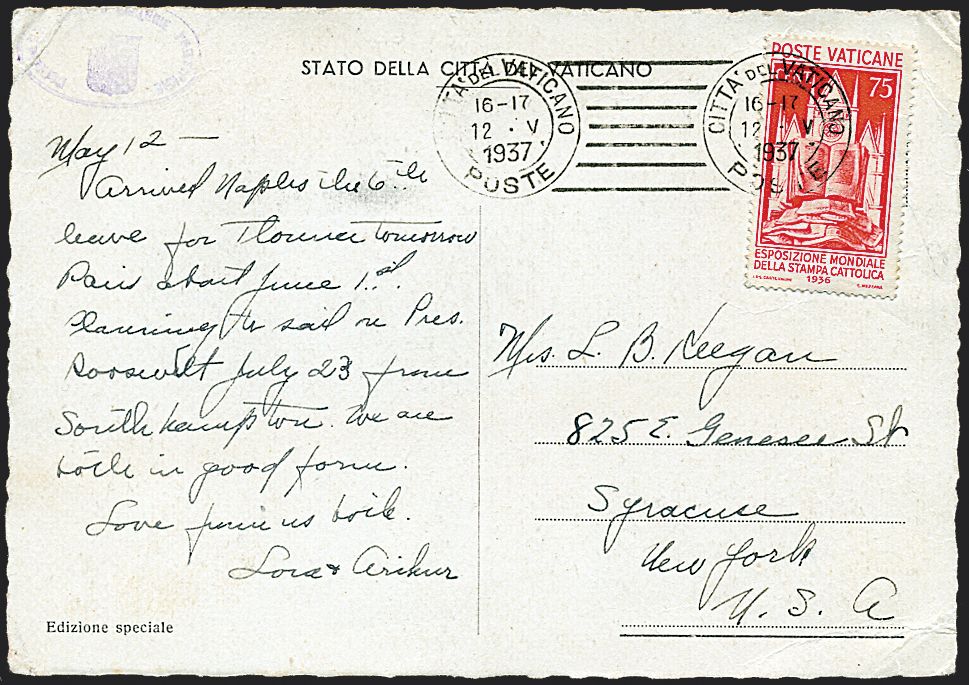 STATO DELLA CITTÀ DEL VATICANO
CITTA' DEL VATICANO
16-17
12 · V
1937
POSTE
CITTA' DEL VATICANO
16-17
12 · V
1937
POSTE
POSTE VATICANE
75
ESPOSIZIONE MONDIALE
DELLA STAMPA CATTOLICA
1936
May 12 —
Arrived Naples the 6th
leave for Florence tomorrow
Paris about June 1st.
Planning to sail on Pres.
Roosevelt July 23 from
Southhampton. We are
both in good form.
Love from us both.
Lora + Arthur
Mrs. L. B. Keegan
825 E. Genesee St
Syracuse
New York
U. S. A
Edizione speciale